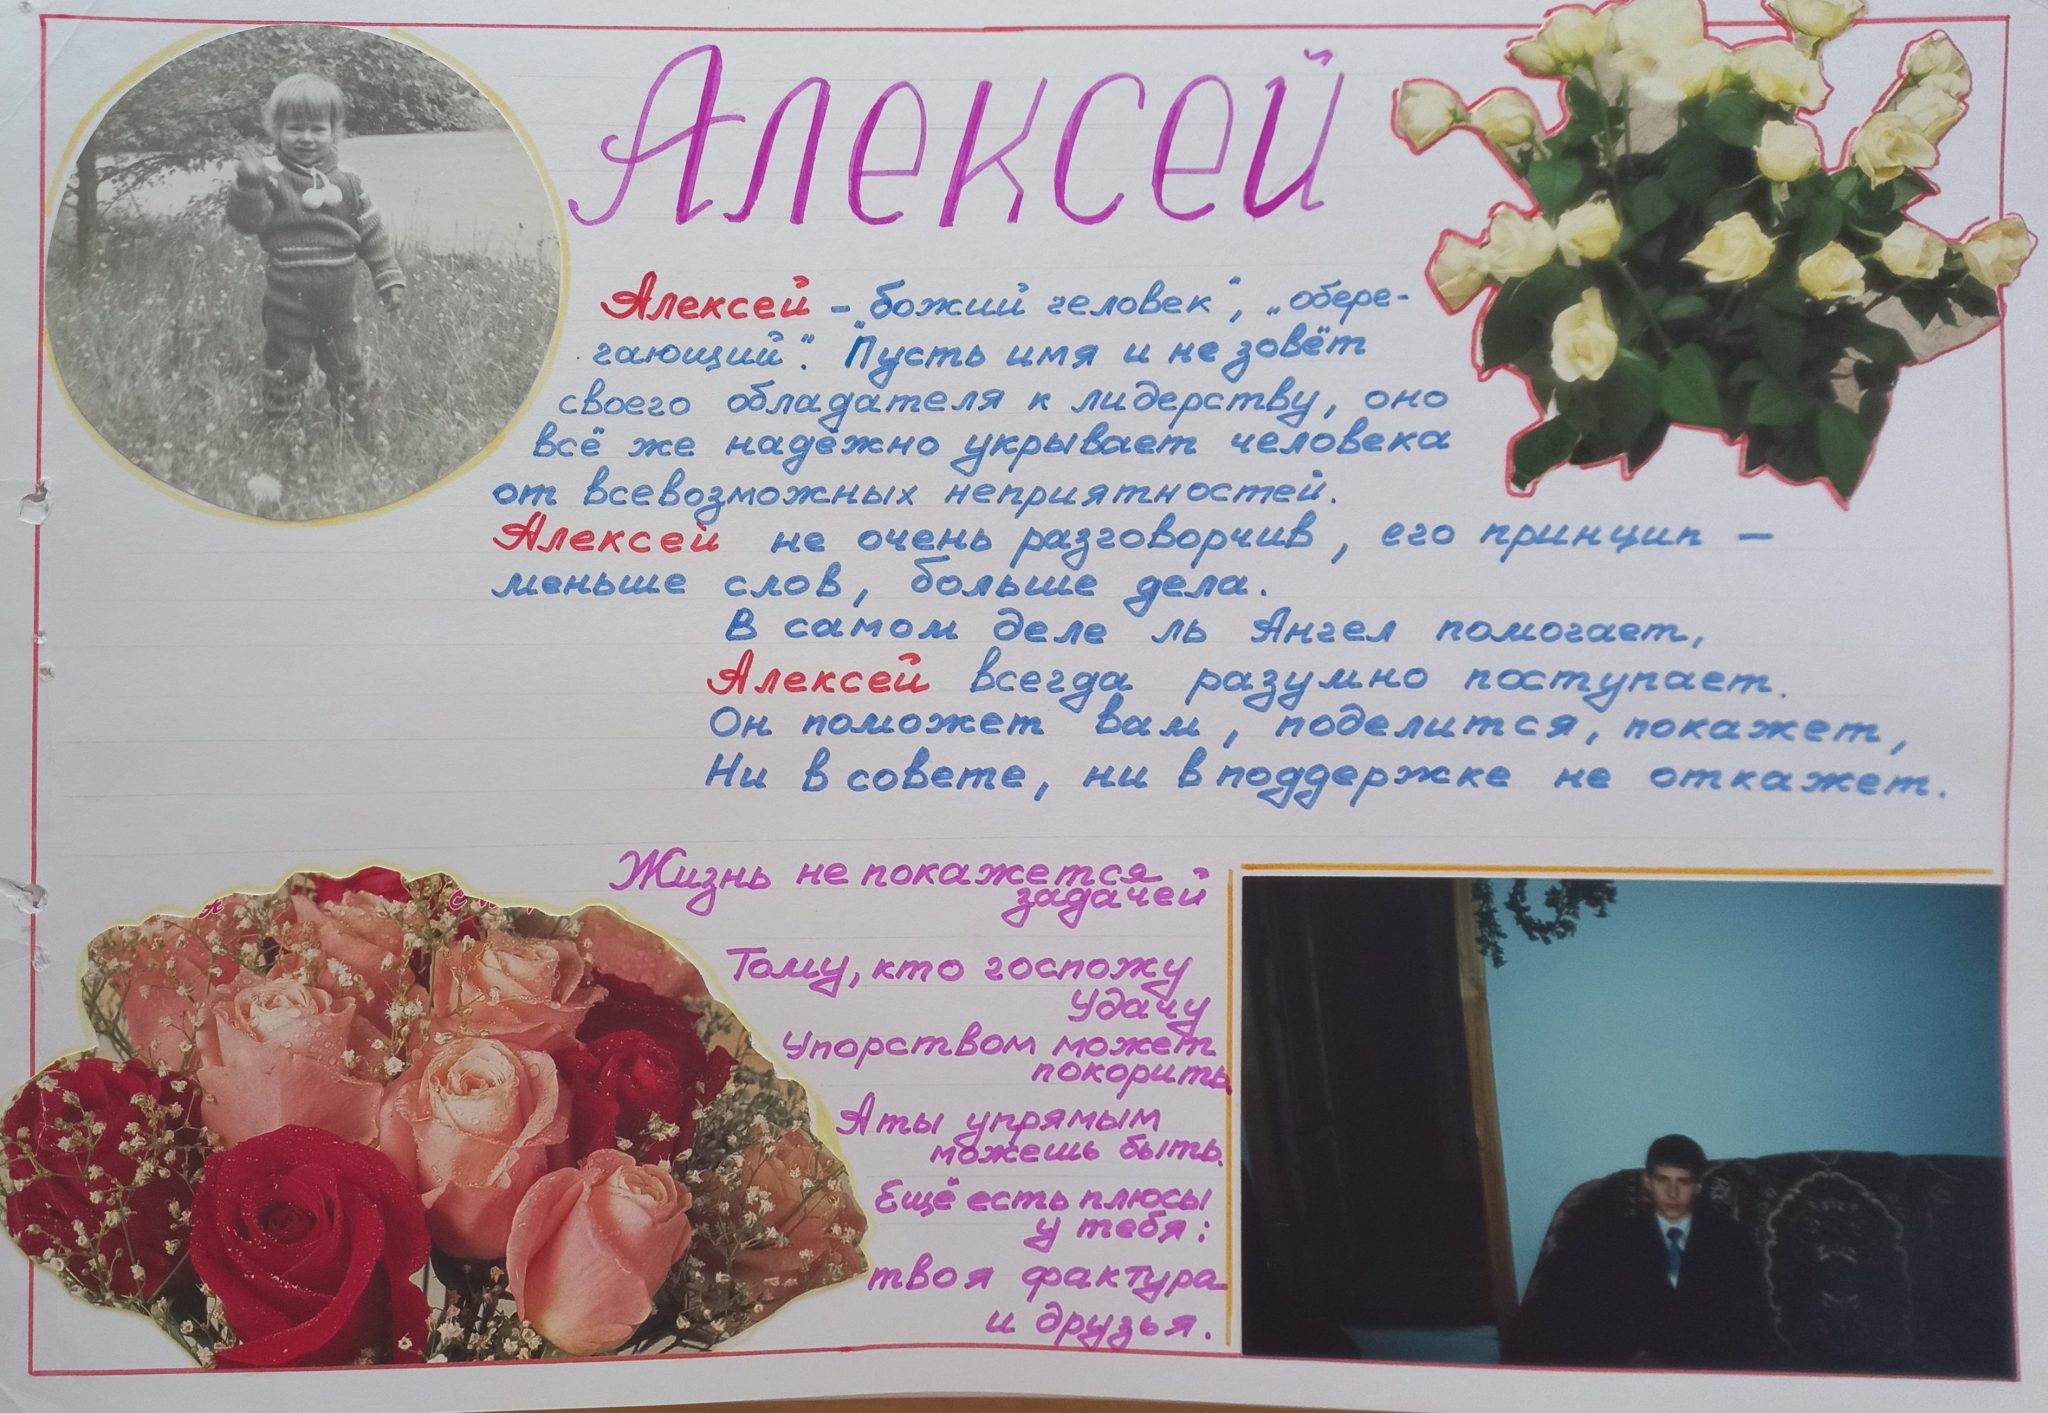 Алексей
Алексей – "божий человек", "обере-
гающий". "Пусть имя и не зовёт
своего обладателя к лидерству, оно
всё же надёжно укрывает человека
от всевозможных неприятностей.
Алексей не очень разговорчив, его принцип –
меньше слов, больше дела.
В самом деле ль Ангел помогает,
Алексей всегда разумно поступает.
Он поможет вам, поделится, покажет,
Ни в совете, ни в поддержке не откажет.
Жизнь не покажется
задачей
Тому, кто госпожу
Удачу
Упорством может
покорить.
А ты упрямым
можешь быть.
Ещё есть плюсы
у тебя:
твоя фактура
и друзья.